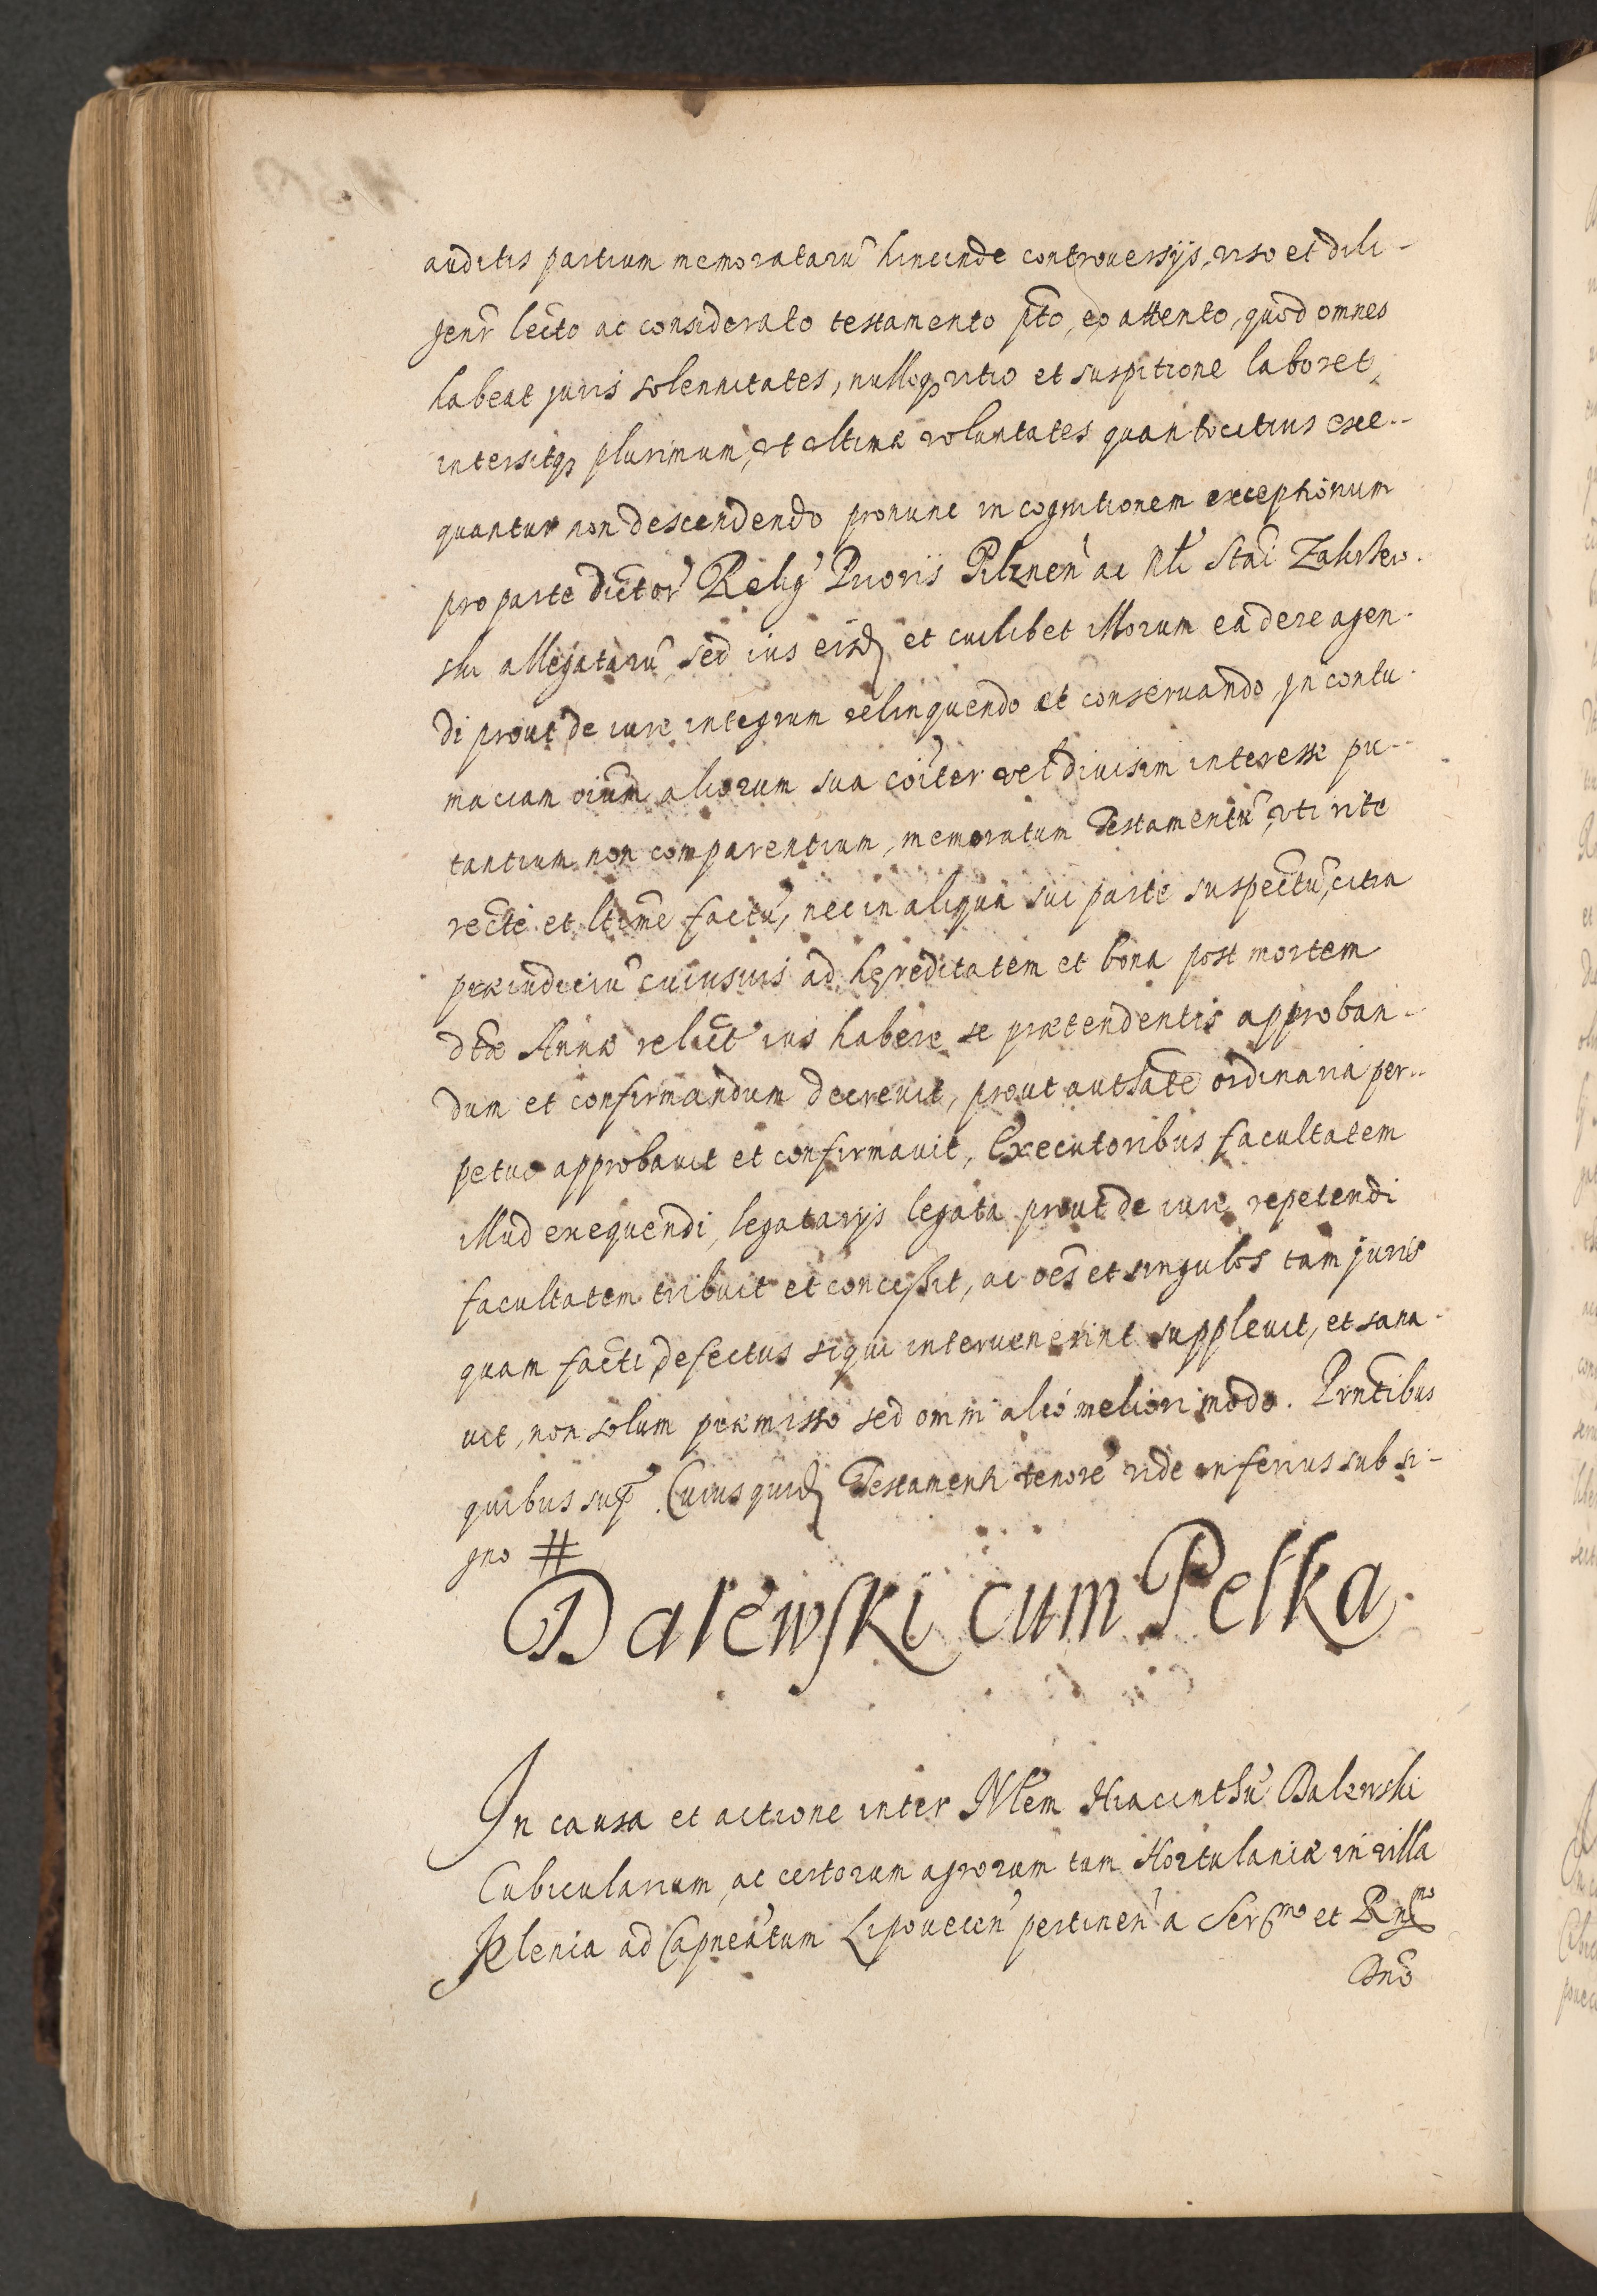 auditis partium memoratarū hincinde controuersijs, viso et dili-
genr lecto ac considerato testamento pto, eo attento, quod omnes
habeat juris solennitates, nulloq vitio et suspitione laboret,
intersitq plurimum, vt vltimæ voluntates quantocitius exe--
quantur non descendendo pronunc in cognitionem exceptionum
pro parte dictor Relig Prioris Pilznen ac Nli Stai Zakrzew-
ski allegatarū sed ius eisd et cuilibet illorum ea de re agen-
di prout de iure integrum relinquendo et conseruando jn contu-
maciam oium aliorum sua coiter vel diuisim interesse pu--
tantium non comparentium, memoratum Testamentū vti rite
recte et ltime factū, nec in aliqua sui parte suspectū, citra
præiudiciū cuiusuis ad hęreditatem et bona post mortem
dtæ Annæ relict ius habere se prætendentis approban-
dum et confirmandum decreuit, prout authate ordinaria per--
petuo approbauit et confirmauit, Executoribus facultatem
illud exequendi, legatarijs legata prout de iure repetendi
facultatem tribuit et concessit, ac oes et singulos tam juris
quam facti defectus si qui interuenerint suppleuit, et sana-
uit, non solum præmisso sed omni alio meliori modo. Prntibus
quibus sup. Cuius quid Testamenti tenore vide inferius sub si-
gno #
Dalewski cum Pełka
In causa et actione inter Nlem Hiacinthū Dalewski
Cubicularium, ac certorum agrorum tum Hortulaniæ in villa
Jelenia ad Capneatum Lipouecen pertinen a Sermo et Rndmo
Dno